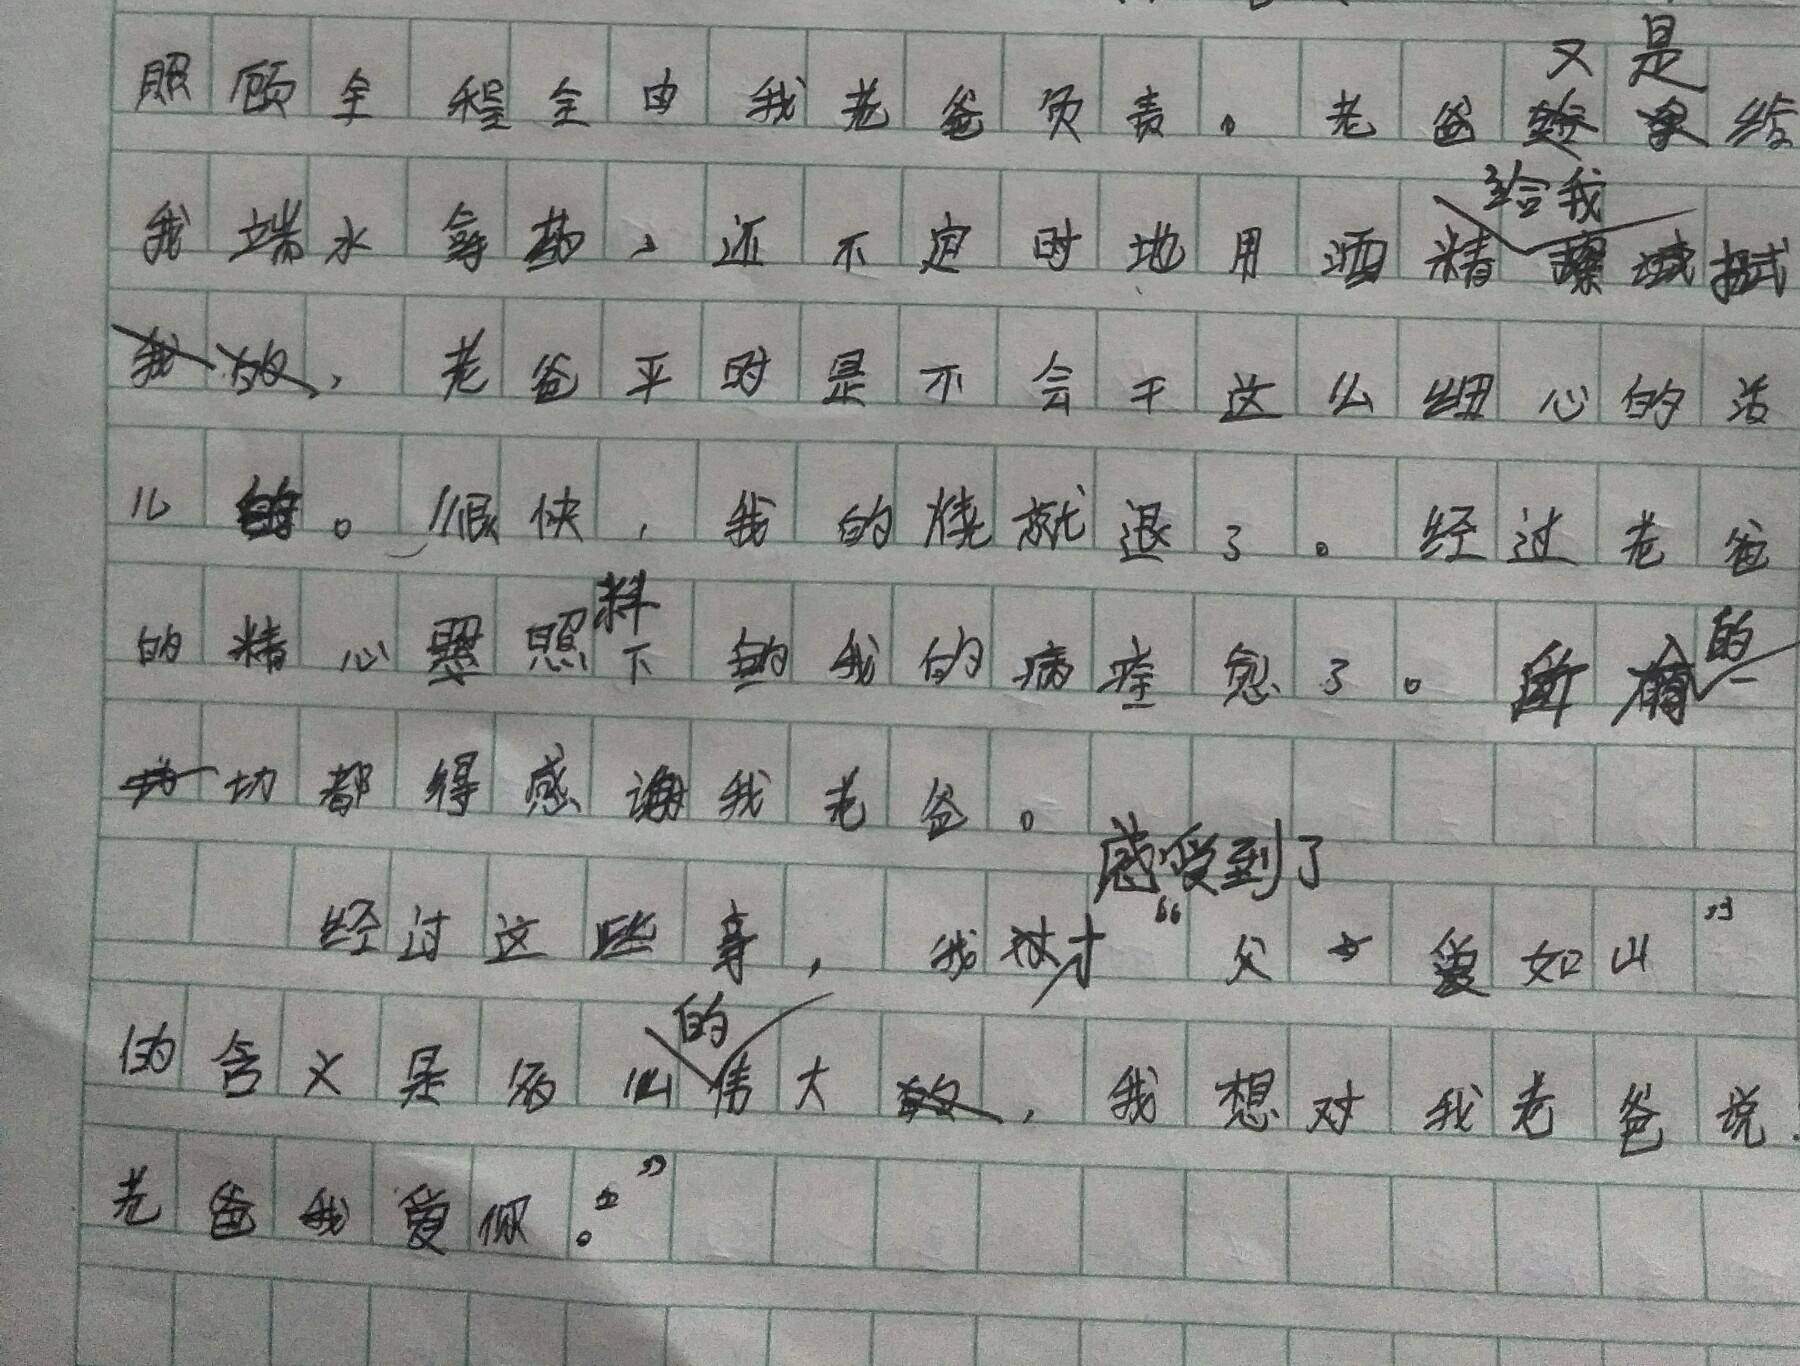 照顾全程全由我老爸负责。老爸又是给
我端水拿药，还不定时地用酒精给我擦拭
，老爸平时是不会干这么细心的活
儿的。很快，我的烧就退了。经过老爸
的精心照料下我的病痊愈了。所有的一
切都得感谢我老爸。
经过这些事，我才感受到了“父爱如山”
的含义是如山的伟大，我想对我老爸说：
老爸我爱你。”